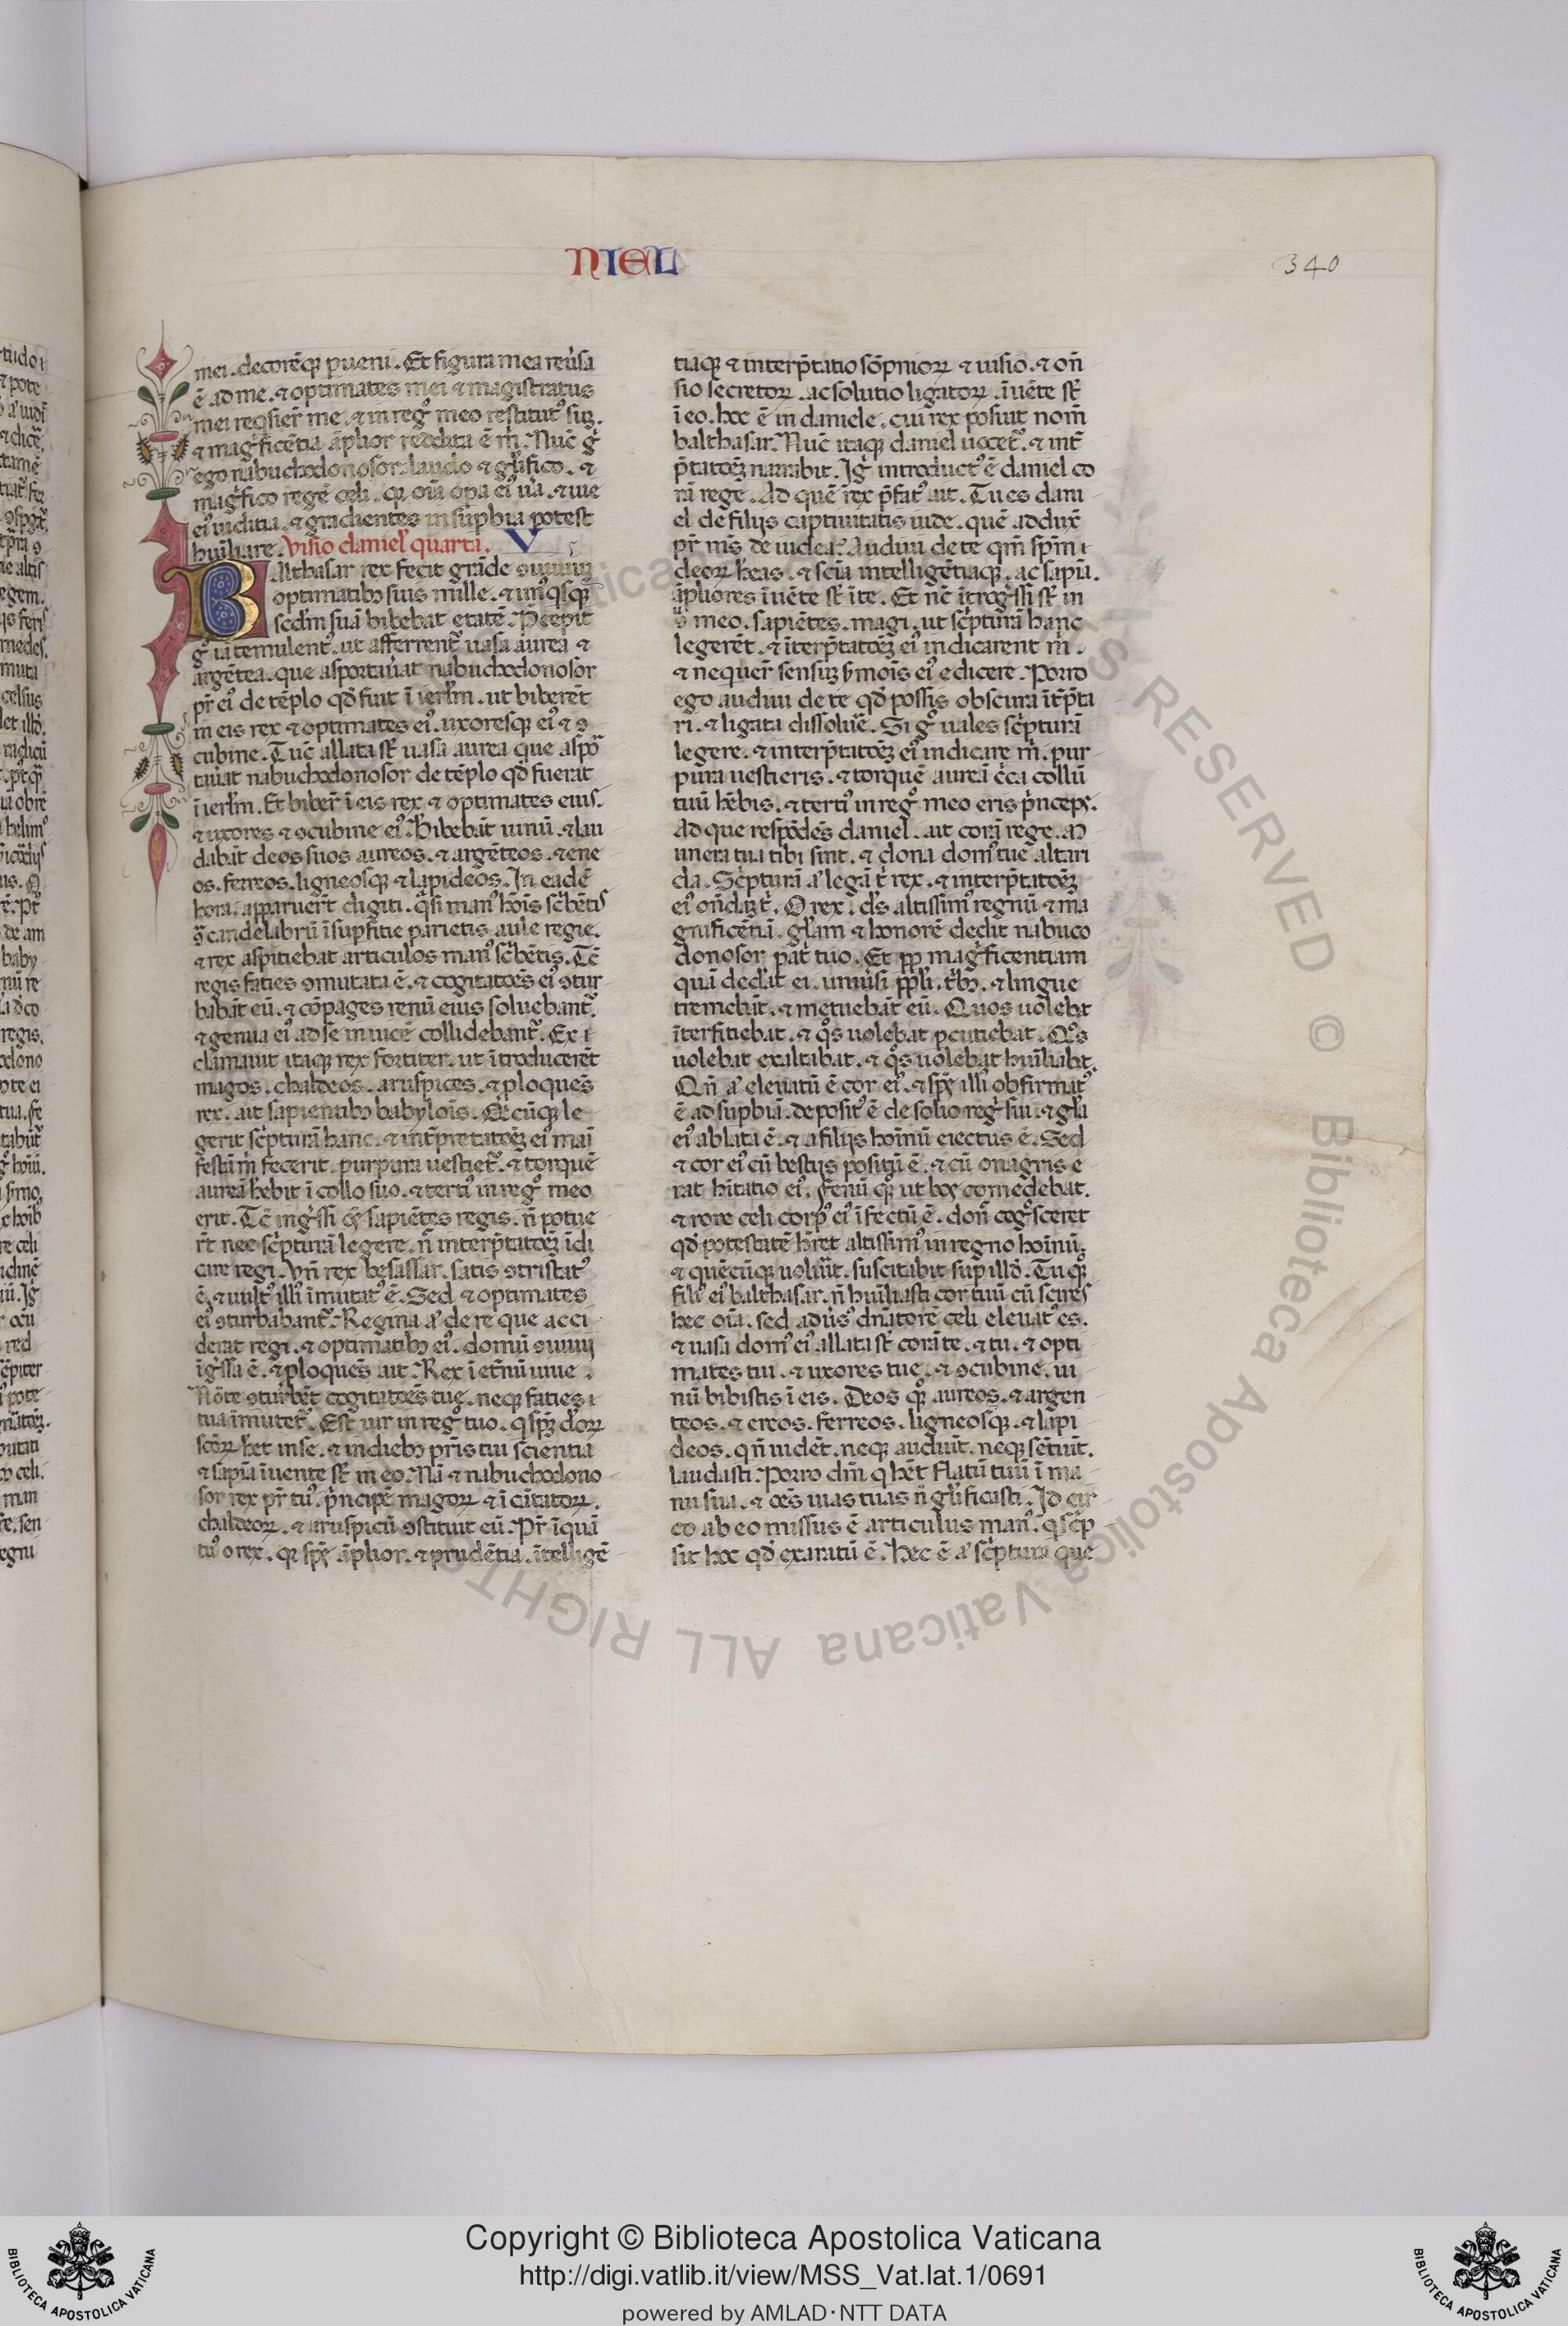 NIEL
340
mei. decorēq; ꝑueni. Et figura mea reūsa
ē ad me. ⁊ optimates mei ⁊ magistratus
mei reqsier̄t me. ⁊ in regͦ meo restitutꝰ sūꝫ.
⁊ magͥficētia āplior reddita ē m̄. Nūc gͥ
ego nabuchodonosor. laudo ⁊ glīfico. ⁊
magͥfico regē celi. qꝛ oīa oꝑa eiꝰ ūa. ⁊ uie
eiꝰ iuditia. ⁊ gradientes in suꝑbia potest
huīliare. Visio danielꝭ quarta. V
Balthasar rex fecit grāde ꝯuiuiū
optimatibꝫ suis mille. ⁊ unꝰqsq;
scdm̄ suā bibebat etatē. P̄cepit
gͥ iā temulentꝰ. ut afferrent̄ uasa aurea ⁊
argētea. que asportau̇at nabuchodonosor
pr̄ eiꝰ de tēplo qd̄ fuit ī ierl̄m. ut biberēt
in eis rex ⁊ optimates eiꝰ. uxoresq; eiꝰ ⁊ ꝯ
cubine. Tūc allata st̄ uasa aurea que aspo
tau̇at nabuchodonosor de tēplo qd̄ fuerat
ī ierl̄m. Et biber̄t ī eis rex ⁊ optimates eius.
⁊ uxores ⁊ ꝯcubine eiꝰ. Bibebāt uinū. ⁊ lau
dabāt deos suos aureos. ⁊ argēteos. ⁊ ene
os. ferreos. ligneosq; ⁊ lapideos. In eadē
hora. apparuer̄t digiti. qͣsi manꝰ hoīs sc̄bētis
ꝯͣ candelabrū ī suꝑfitie parietis aule regie.
⁊ rex aspitiebat articulos manꝰ sc̄bētis. Tc̄
regis faties ꝯmutata ē. ⁊ cogitatōes eiꝰ ꝯtur
babāt eū. ⁊ cōpages renū eius soluebant̄.
⁊ genua eiꝰ ad se inuicē collidebant̄. Ex ı
clamauit itaq; rex fortiter. ut ītroducerēt
magos. chaldeos. aruspices. ⁊ ploquēs
rex. ait sapientibꝫ babyloīs. Qͥcūq; le
gerit sc̄pturā hanc. ⁊ int̄pretatōeꝫ eiꝰ mai
festā m̄ fecerit. purpura uestiet̄. ⁊ torquē
aureā hēbit ī collo suo. ⁊ tertiꝰ in regͦ meo
erit. Tc̄ ingͥssi oēs sapiētes regis. n̄ potue
r̄t nec sc̄pturā legere. n̄ interp̄tatōeꝫ īdi
care regi. Vn̄ rex besassar. satis ꝯtristatꝰ
ē. ⁊ uultꝰ illiꝰ īmutatꝰ ē. Sed ⁊ optimates
eiꝰ ꝯturbabant̄. Regina aͧ de re que acci
derat regi. ⁊ optimatibꝫ eiꝰ. domū ꝯuiuij
īgͥssa ē. ⁊ ploquēs ait. Rex ī et̄nū uiue.
Nō te ꝯturbēt cogitatōes tue. neq; faties ı
tua īmutet̄. Est uir in regͦ tuo. q sp̄ꝫ dꝰoꝝ
scōꝝ hēt in se. ⁊ in diebꝫ pr̄is tui scientia
⁊ sapīa īuente st̄ in eo. Nā ⁊ nabuchodono
sor rex pr̄ tuꝰ. pͥncipē magoꝝ ⁊ ī cātatoꝝ.
chaldeoꝝ. ⁊ aruspicū ꝯstituit eū. Pr̄ īquā
tuꝰ o rex. qꝛ sp̄s āplior. ⁊ prudētia. ītelligē
tiaq; ⁊ interp̄tatio sōpnioꝝ ⁊ uisio. ⁊ on̄
sio secretoꝝ. ac solutio ligatoꝝ. īuēte st̄
ī eo. hoc ē in daniele. cui rex posuit nom̄
balthasar. Nūc itaq; daniel uocet̄. ⁊ int̄
p̄tatōeꝫ narrabit. Igͥ introductꝰ ē daniel co
rā rege. Ad quē rex p̄fatꝰ ait. Tu es dani
el de filijs captiuitatis iude. quē adduxͭ
pr̄ m̄s de iudea? Audiui de te qm̄ sp̄m ı
deoꝝ hēas. ⁊ scīa intelligētiaq;. ac sapīa.
āpliores īuēte st̄ ī te. Et nc̄ ītrogͥssi st̄ in
ꝯͣ meo. sapiētes. magi. ut sc̄pturā hanc
legerēt. ⁊ īterp̄tatōeꝫ eiꝰ indicarent m̄.
⁊ nequer̄t sensuꝫ ẜmois eiꝰ edicere. Porro
ego audiui de te qd̄ possis obscura īt̄p̄ta
ri. ⁊ ligata dissolu̇e. Si gͦ uales sc̄pturā
legere. ⁊ interp̄tatōeꝫ eiꝰ indicare m̄. pur
pura uestieris. ⁊ torquē aureā c̄ca collū
tuū hēbis. ⁊ tertiꝰ in regͦ meo eris pͥnceps.
Ad que respōdēs daniel. ait corā rege. M
unera tua tibi sint. ⁊ dona domꝰ tue altari
da. Sc̄pturā aͧ legā t̄ rex. ⁊ interp̄tatōeꝫ
eiꝰ on̄dāꝫ t̄. O rex. ds̄ altissimꝰ regnū ⁊ ma
gnificētiā. gl̄am ⁊ honorē dedit nabuco
donosor pat̄ tuo. Et ꝓp̄ magͥficentiam
quā dedāt ei. uniūsi ppl̄i. tͥbꝫ. ⁊ lingue
tremebāt. ⁊ metuebāt eū. Quos uolebat
īterfitiebat. ⁊ qͦs uolebat ꝑcutiebat. Qͦs
uolebat exaltabat. ⁊ qͦs uolebat huīliabat.
Qn̄ aͧ eleuatū ē cor eiꝰ. ⁊ sp̄s illiꝰ obfirmatꝰ
ē ad suꝑbiā. depositꝰ ē de solio regͥ sui. ⁊ gl̄a
eiꝰ ablata ē. ⁊ a filijs hoīnū eiectus ē. Sed
⁊ cor eiꝰ cū bestijs positū ē. ⁊ cū onagris e
rat hītatio eiꝰ. Fenū qͦꝫ ut bos comedebat.
⁊ rore celi corpꝰ eiꝰ īfectū ē. don̄ cogͦsceret
qd̄ potestatē hēret altissimꝰ in regno hoīnū.
⁊ quēcūq; uolūit. suscitabit suꝑ illd̄. Tu qͦꝫ
filiꝰ eiꝰ balthasar. n̄ huīliasti cor tuū cū scires
hec oīa. sed adūsꝰ dn̄atorē celi eleuatꝰ es.
⁊ uasa domꝰ eiꝰ allata st̄ corā te. ⁊ tu. ⁊ opti
mates tui. ⁊ uxores tue. ⁊ ꝯcubine. ui
nū bibistis ī eis. Deos qͦꝫ aureos. ⁊ argen
teos. ⁊ ereos. ferreos. ligneosq;. ⁊ lapi
deos. q n̄ uidēt. neq; audiūt. neq; sētiūt.
laudasti. Porro dm̄ q hēt flatū tuū ī ma
nu sua. ⁊ oēs uias tuas n̄ glīficasti. Id cir
co ab eo missus ē articulus manꝰ. q sc̄p
sit hoc qd̄ exaratū ē. Hec ē aͧ sc̄ptura que
Copyright © Biblioteca Apostolica Vaticana
http://digi.vatlib.it/view/MSS_Vat.lat.1/0691
powered by AMLAD·NTT DATA